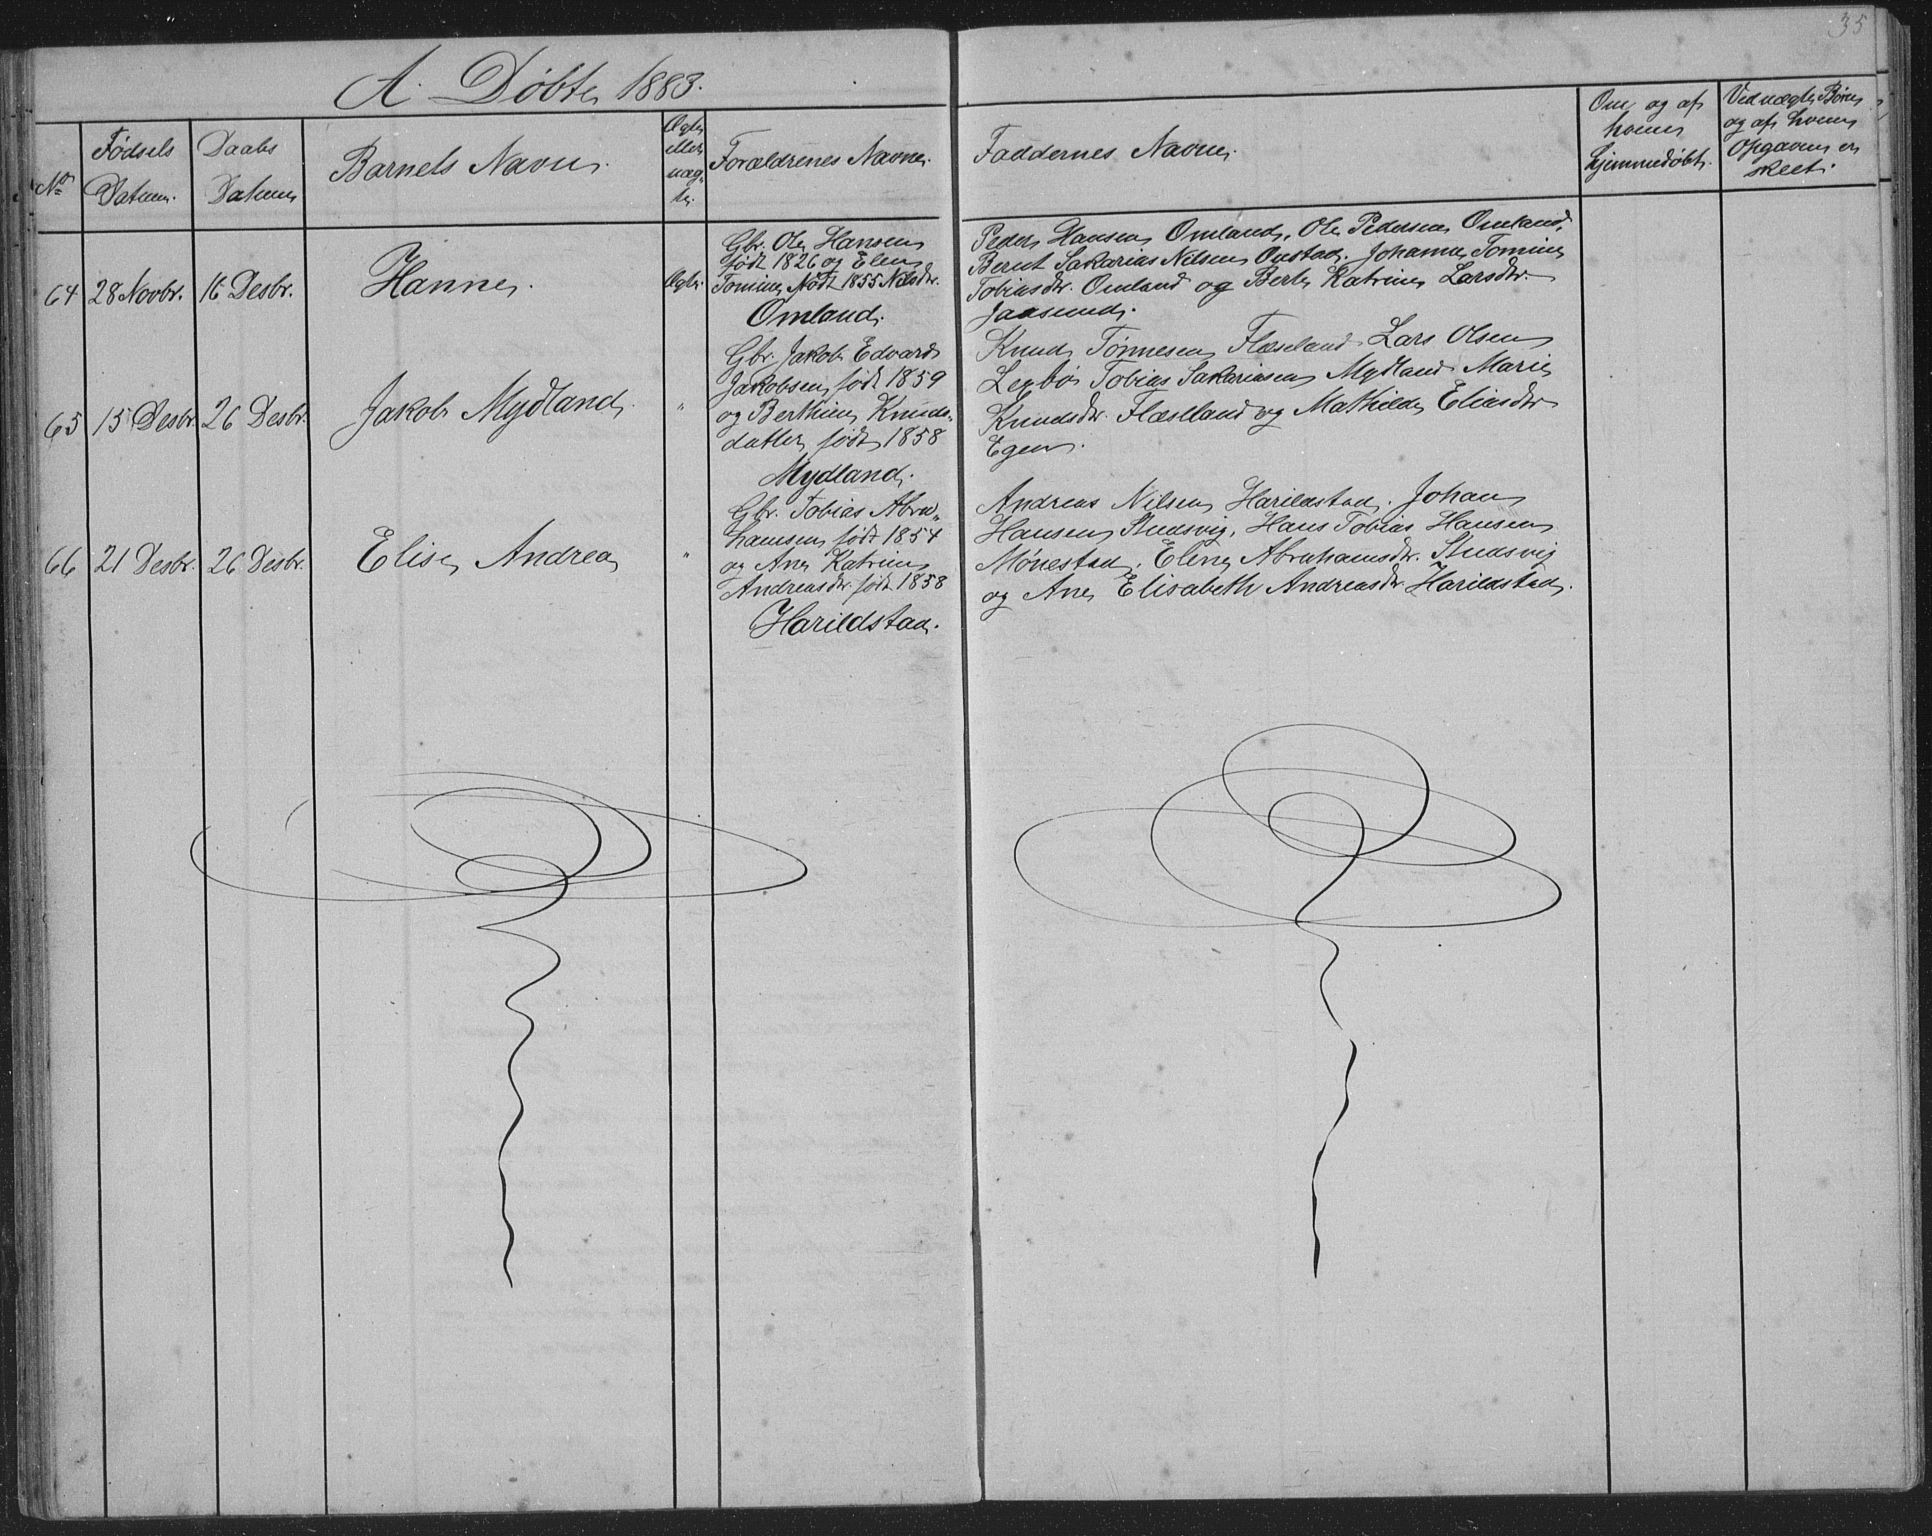 35
A. Døbte 1883.
No
Fødsels Datum.
Daabs Datum
Barnets Navn.
Ægte eller uægte.
Forældrenes Navne.
Faddernes Navne.
Om og af hvem hjemmedøbt.
Ved uægte Børn og af hvem Opgaven er skeet.
64 28 Novbr. 16 Desbr. Hanne. Ægte.
Gbr. Ole Hansen
født 1826 og Elen
Tomine født 1855 Nilsdtr.
Omland.
Peder Hansen Omland, Ole Pedersen Omland,
Bernt Sakarias Nilsen Onstad, Johanne Tomine
Tobiasdtr. Omland og Berte Katrine Larsdtr.
Jaasund.
65 15 Desbr. 26 Desbr. Jakob Mydland. "
Gbr. Jakob Edvard
Jakobsen født 1859
og Berthine Knuds-
datter født 1858
Mydland.
Knud Tønnesen Flæseland Lars Olsen
Lexbø Tobias Sakariasen Mydland Marie
Knudsdtr. Flæseland og Mathilde Eliasdtr
Egen.
66 21 Desbr. 26 Desbr. Elise Andrea "
Gbr. Tobias Abra-
hamsen født 1854
og Ane Katrine
Andreasdtr. født 1858
Harildstad.
Andreas Nilsen Harildstad. Johan
Hansen Studsvig, Hans Tobias Hansen
Mønestad, Eline Abrahamsdtr. Studsvig
og Ane Elisabeth Andreasdtr Harildstad.